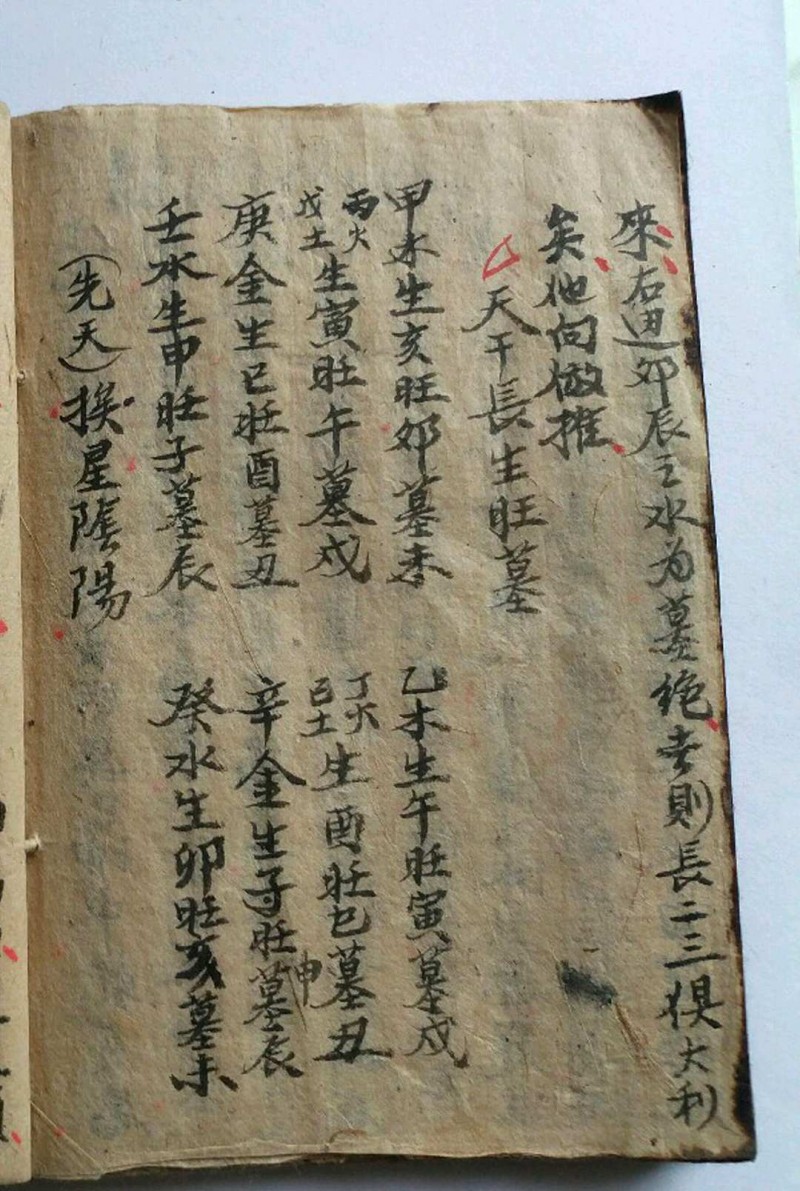 來右边卯辰三水为墓绝去則長二三俱大利
矣他向倣推
天干長生旺墓
甲木生亥旺卯墓未
乙木生午旺寅墓戍
丙火戊土生寅旺午墓戍
丁火己土生酉旺巳墓丑
庚金生巳旺酉墓丑
辛金生子旺申墓辰
壬水生申旺子墓辰
癸水生卯旺亥墓未
(先天)挨星隂陽